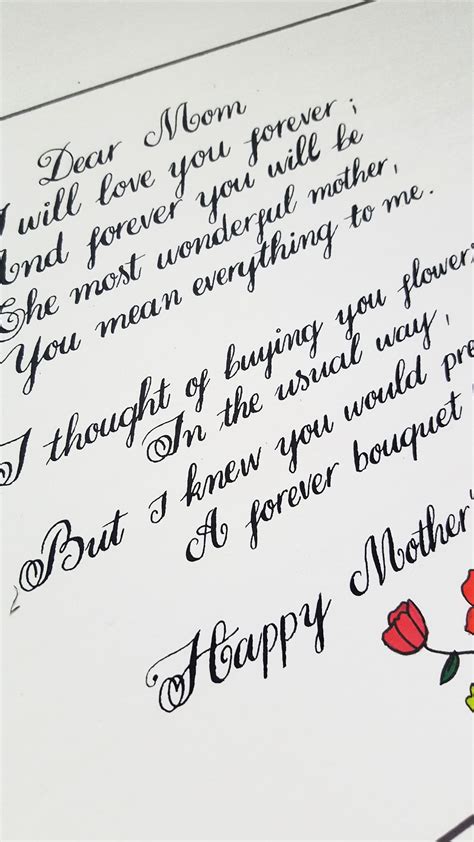 Dear Mom
I will love you forever;
And forever you will be
The most wonderful mother,
You mean everything to me.
I thought of buying you flowers
In the usual way,
But I knew you would pre
A forever bouquet
Happy Mother'